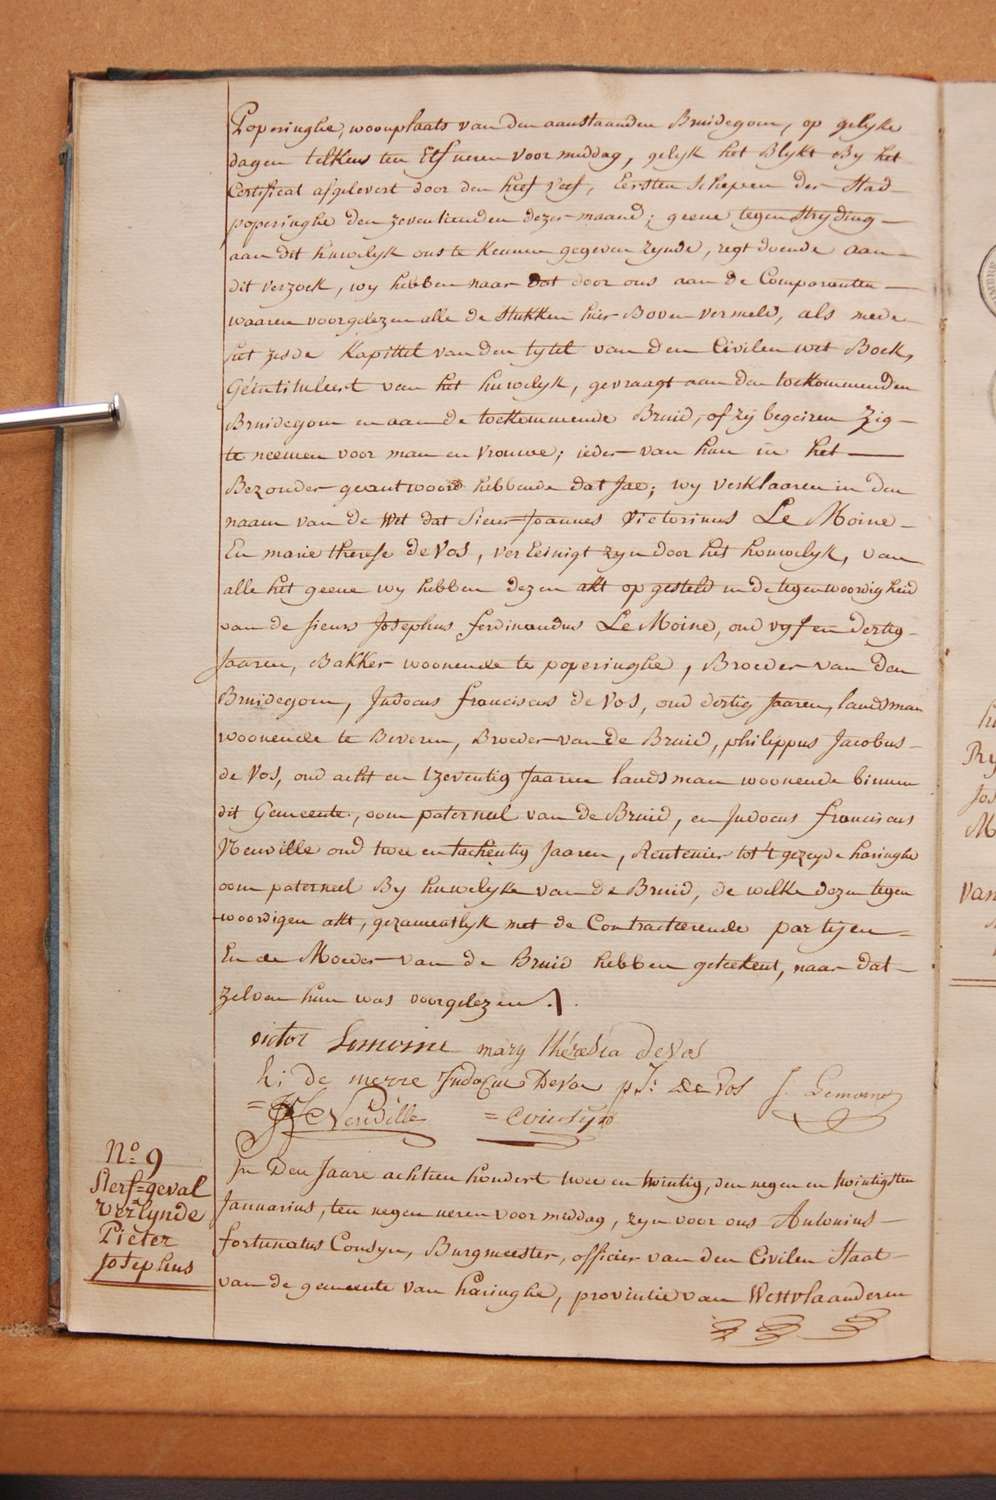 Poperinghe, woonplaats van den aanstaanden Bruidegom, op gelijke
dagen telkens ten Elf ueren voormiddag, gelijk het Blijkt By het
Certificat afgelevert door den heer Reef, Eersten Schepen der Stad
poperinghe den zeventienden dezer maand; geene tegen Stryding
aan dit huwelyk ons te kennen gegeven zynde, regt doende aan
dit verzoek, wy hebben naar dat door ons aan de Comparanten
waaren voorgelezen alle de Stukken hier Boven vermeld, als mede
het zesde Kapittel van den tytel van den Civilen wet Boek,
Geintituleert van het huwelyk, gevraagt aan den toekommenden
Bruidegom en aan de toekommende Bruid, of zij begeiren Zig
te neemen voor man en vrouwe; ieder van hun in het
Bezonder geantwoord hebbende dat Jae; wy verklaaren in den
naam van de Wet dat Sieur Joannes Victorinus Le Moine
En marie therese de Vos, ver Einigt zyn door het houwelyk, van
alle het geene wy hebben dezen akt op gesteld in de tegenwoordigheid
van de sieurs Josephus ferdinandus Le Moine, oud vyf en dertig
Jaaren, Bakker woonende te poperinghe, Broeder van den
Bruidegom, Judocus franciscus de Vos, oud dertig Jaaren, landsman
woonende te Beveren, Broeder van de Bruid, philippus Jacobus
de Vos, oud acht en tzeventig Jaaren landsman woonende binnen
dit Gemeente, oom paterneel van de Bruid, en Judocus franciscus
Neuville oud twee en tachentig Jaaren, Rentenier tot 't gezeyde haringhe
oom paterneel By huwelyke van de Bruid, de welke dezen tegen
woordigen akt, gezamentlyk met de Contracteerende partijen
En de Moeder van de Bruid hebben geteekent, naar dat
zelven hun was voorgelezen
victor Lemoine mary théresia de Vos
hi de merre Judocus De Vos p J: de Vos J. Lemoine
= JF Neuville = Cousyn
N° 9
Sterf=geval
Verlynde
Pieter
Josephus
In Den Jaare achtien hondert twee en twintig, den negen en twintigsten
Januarius, ten negen ueren voormiddag, zyn voor ons Antonius
fortunatus Cousyn, Burgmeester, officier van den Civilen Staat
van de gemeente van haringhe, provintie van Westvlaanderen